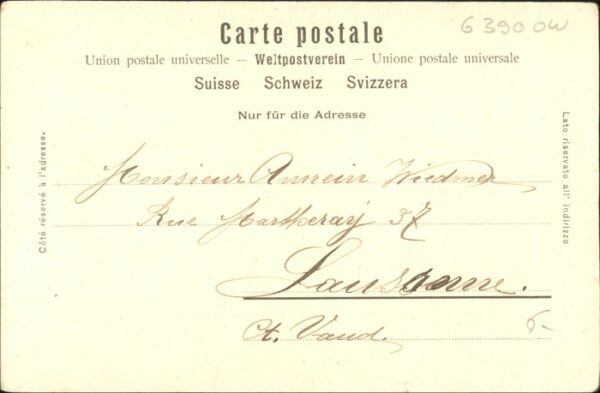 63900W
Carte postale
Union postale universelle – Weltpostverein – Unione postale universale
Suisse Schweiz Svizzera
Nur für die Adresse
Côté réservé à l'adresse.
Lato riservato all' indirizzo
Monsieur Amrein Wiedmer
Rue Martheray 37
Lausanne.
Ct. Vaud.
6-